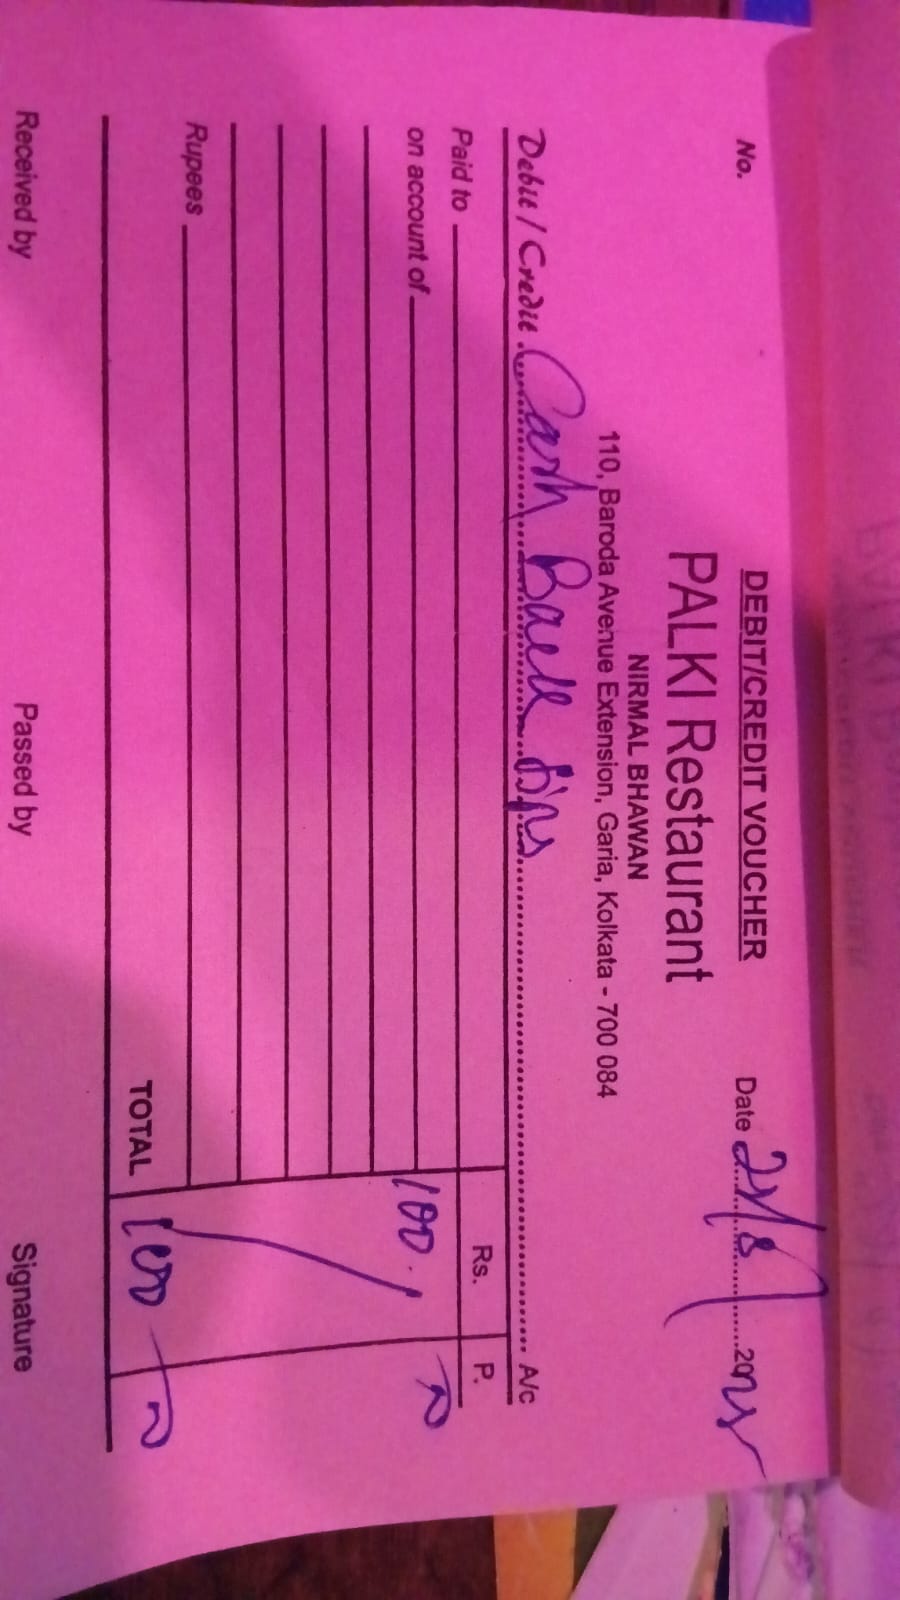 No.
DEBIT/CREDIT VOUCHER
PALKI Restaurant
NIRMAL BHAWAN
110, Baroda Avenue Extension, Garia, Kolkata - 700 084
Date 2
Debit / Credit Cash Back A/c
Paid to Rs. P.
on account of 100
Rupees
TOTAL 100
Received by Passed by Signature